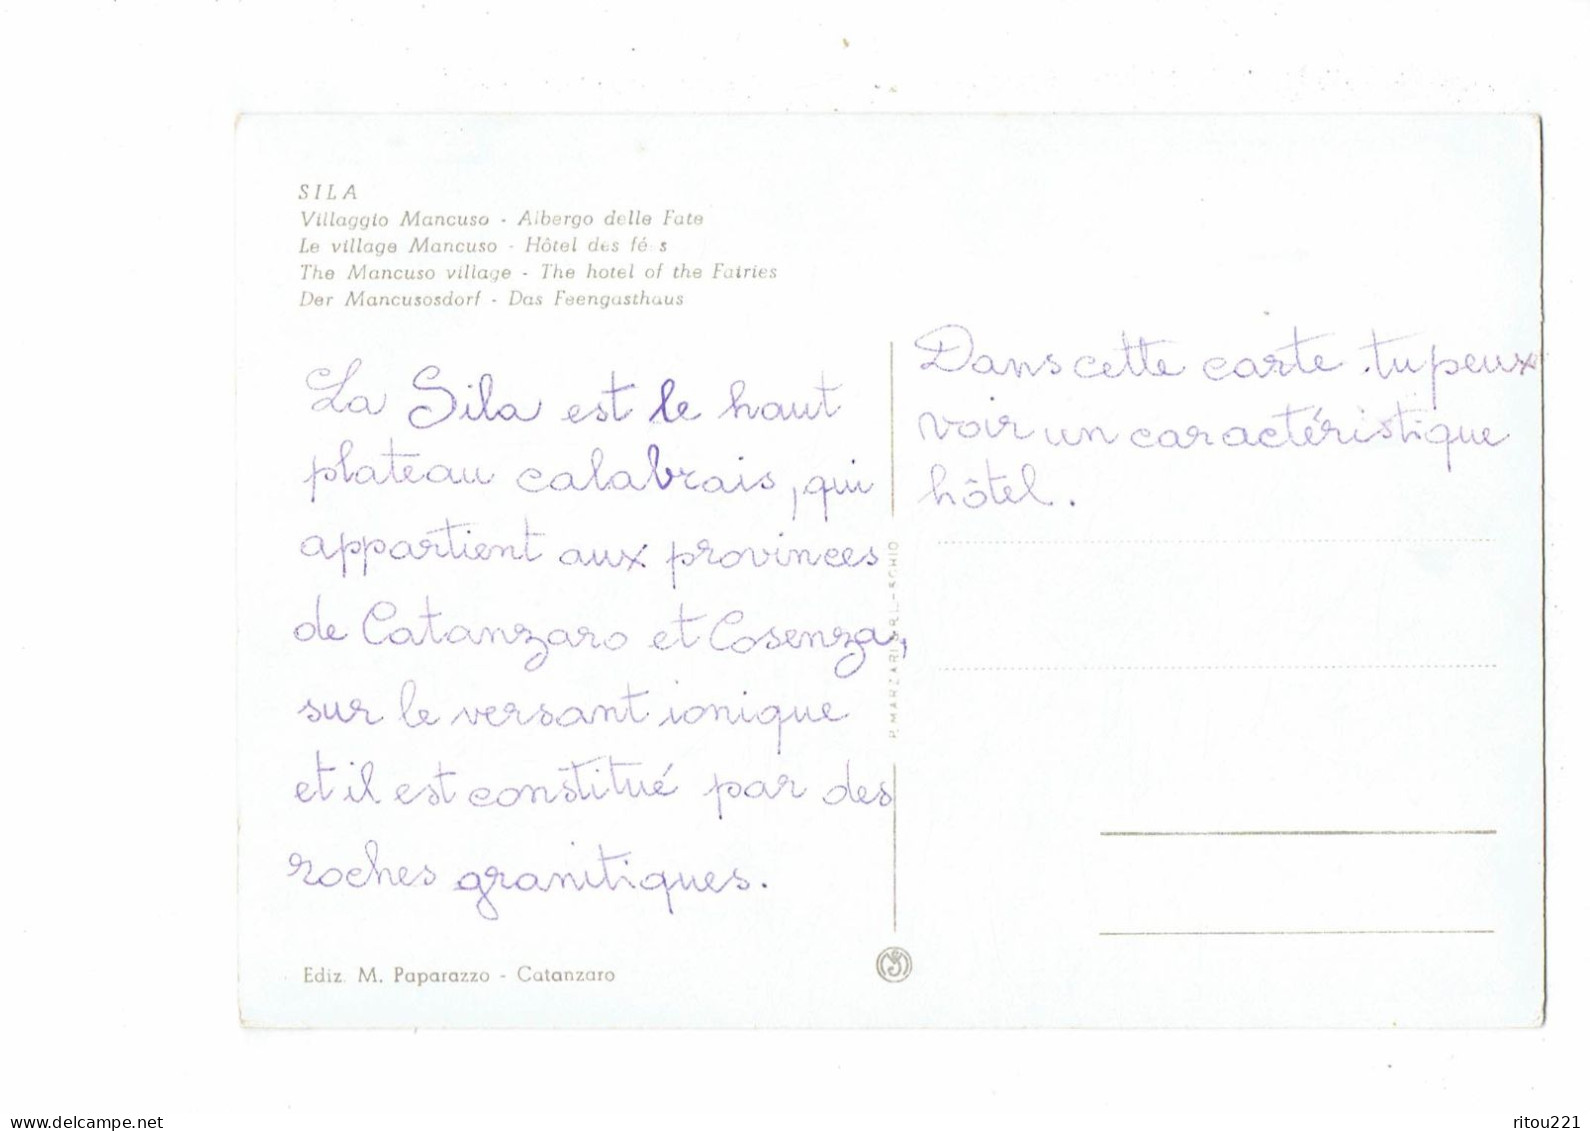 SILA
Villaggio Mancuso - Albergo delle Fate
Le village Mancuso - Hôtel des fées
The Mancuso village - The hotel of the Fairies
Der Mancusosdorf - Das Feengasthaus
La Sila est le haut
plateau calabrais, qui
appartient aux provinces
de Catanzaro et Cosenza,
sur le versant ionique
et il est constitué par des
roches granitiques.
Ediz. M. Paparazzo - Catanzaro
P. MARZARI S.R.L. - SCHIO
Dans cette carte tu peux
voir un caractéristique
hôtel.
www.delcampe.net
ritou221